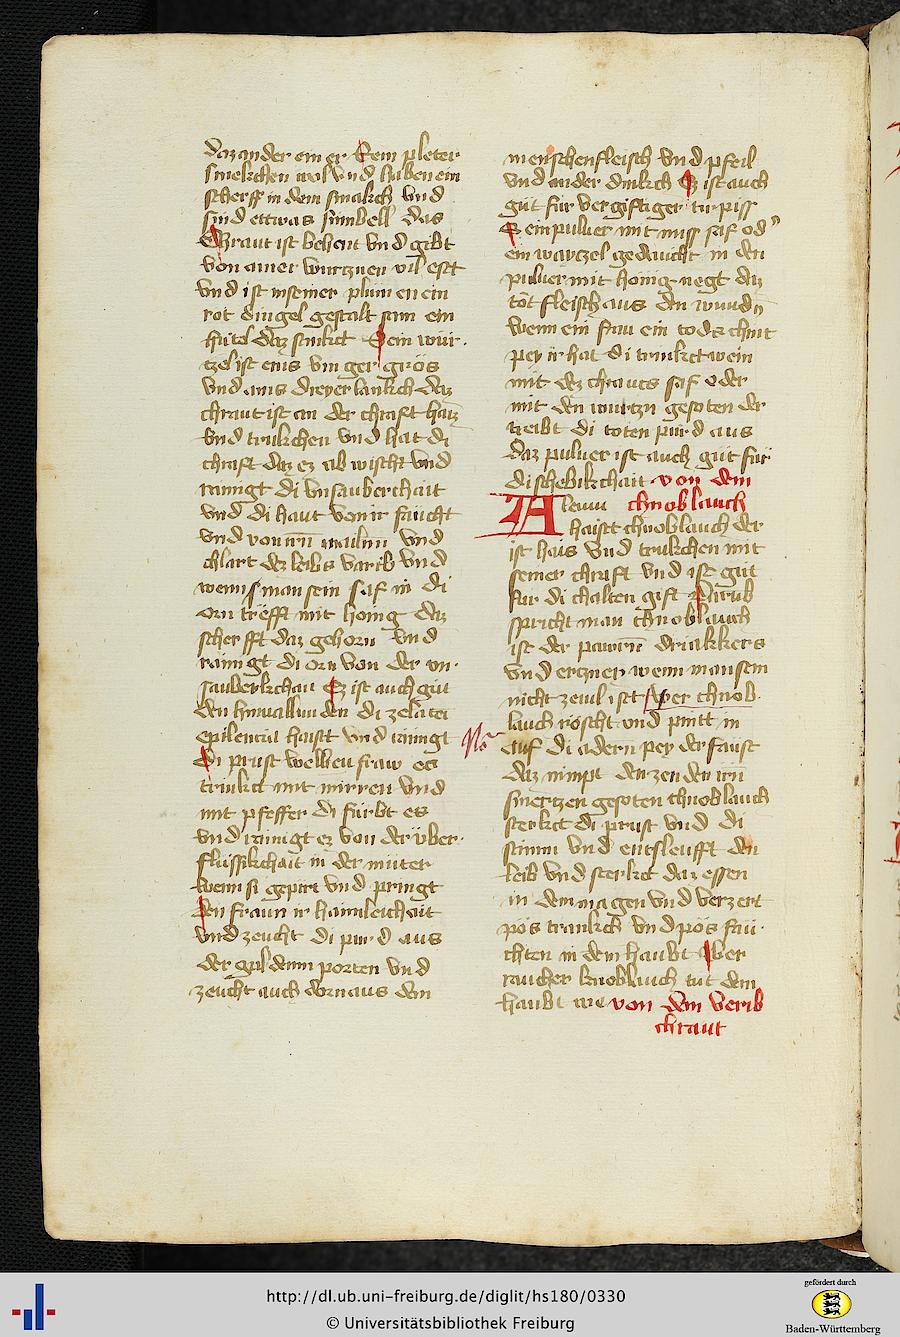 daz ander ein er Sein pleter
smekchen wol vnd haben ein
scherff in dem smakch vnd
sind ettwas sinbell das
Chraut ist behent vnd gibt
von ainer wurtzuen vil estt
vnd ist in seiner plumen ein
rot dingel gestalt sam ein
hütel daz smkct Sein wur-
tzel ist eins vinger grös
vnd ains dreyer lankch daz
chraut ist an der chrafft haiz
vnd trukchen vnd hat di
chraft daz ez ab wischt vnd
rainigt di vnsauberchait
vnd di haut von ir fäucht
vnd von irn maslnn vnd
chlart dez leibs varib vnd
wenn man sein saf in di
orn trëfft mit honig daz
scherfft daz gehorn vnd
rainigt di orn von der vn-
sauberkchait Ez ist auch gut
den hinvallunden di ze latei
epilencia haist vnd rainigt
di prust welheu fraw ez
trinkct mit mirren vnd
mit pfeffer di fürbt es
vnd rainigt ez von der über-
flüssikchait in der muter
wenn si gepirt vnd pringt
den fraun ir haimleichait
vnd zeucht di purd aus
der guldenn porten vnd
zeucht auch dorn aus dem
menschen fleisch vnd pfeil
vnd ander dinkch Ez ist auch
gut für vergiftiger tir piss
Sein puluer mit nuss saf od'
ein wurtzel gedaucht in den
puluer mit honig negt daz
tot fleisch aus den wundn
wenn ein frau ein tods chint
pey ir hat di trinkct wein
mit dez chrauts saf oder
mit den wurtzn gesoten der
treibt di toten purd aus
daz puluer ist auch gut fur
di schebikchait von dem
Aleum chnoblauch
haist chnoblauch der
ist hais vnd trukchen mit
seiner chraft vnd ist gut
für di chalten gift Darub
spricht man chnoblauch
ist der pawrn driakkers
vnd ertzney wenn man sein
nicht zevil isst Wer chnob-
lauch röscht vnd pintt in
No auf di adern pey der faust
daz nimpt den zenden irn
smertzen gesoten chnoblauch
sterkct di prust vnd di
stimm vnd entsleufft den
leib vnd sterkct daz essen
in dem magen vnd verzert
pös trankch vnd pös fäu-
chten in dem haubt Aber
raucher knoblauch tut dem
haubt we von dem Verib
chraut
http://dl.ub.uni-freiburg.de/diglit/hs180/0330
© Universitätsbibliothek Freiburg
gefördert durch
Baden-Württemberg